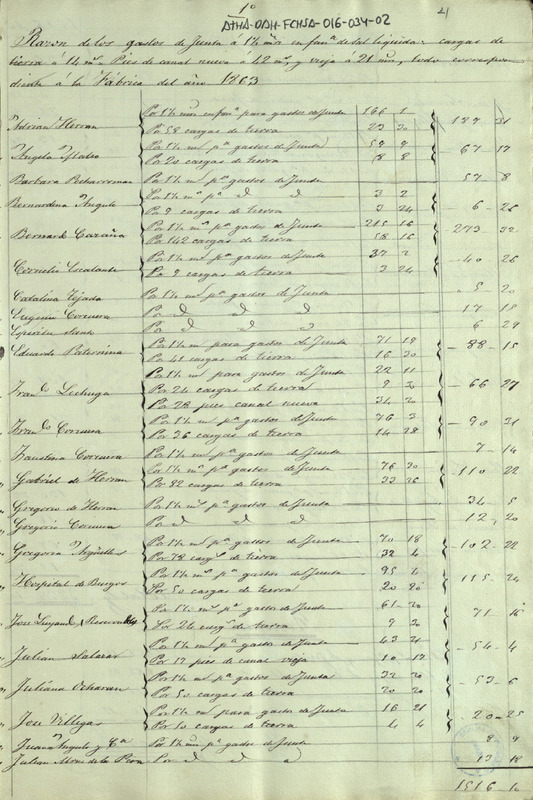 1º
ATHA-DAH-FCHSA-016-034-02
21
Razon de los gastos de Junta á 1½ mrs en fanª de sal liquida: cargas de
tierra á 14 ms. Pies de canal nueva á 42 ms, y vieja á 21 ms, todo correspon
diente á la Fábrica del año 1863
Adrian Herran Por 1½ mrs en fanª para gastos de Junta 166 1
Por 58 cargas de tierra 23 30 189 31
Angela Mateo Por 1½ ms pª gastos de Junta 59 9
Por 20 cargas de tierra 8 8 67 17
Barbara Por 1½ ms pª gastos de Junta 57 8
Bernardina Angulo Por 1½ ms pª id id 3 2
Por 9 cargas de tierra 3 24 6 26
Bernardo Por 1½ ms pª gastos de Junta 215 16
Por 142 cargas de tierra 58 16 273 32
Cornelio Escalante Por 1½ ms pª gastos de Junta 37 2
Por 9 cargas de tierra 3 24 40 26
Catalina Tejada Por 1½ ms pª gastos de Junta 5 20
Eugenio Corcuera Por id id id 17 18
Espiritu Santo Por id id id 6 29
Eduardo Paternina Por 1½ ms para gastos de Junta 71 19
Por 41 cargas de tierra 16 30 88 15
Franco Lechuga Por 1½ ms para gastos de Junta 22 11
Por 24 cargas de tierra 9 30
Por 28 pies canal nueva 34 20 66 27
Franco Corcuera Por 1½ ms pª gastos de Junta 76 3
Por 36 cargas de tierra 14 28 90 31
Faustina Corcuera Por 1½ ms pª gastos de Junta 7 14
Gabriel de Herran Por 1½ ms pª gastos de Junta 76 30
Por 82 cargas de tierra 33 26 110 22
Gregorio de Herran Por 1½ ms pª gastos de Junta 34 5
Gregorio Corcuera Por id id id 12 20
Gregorio Argüelles Por 1½ ms pª gastos de Junta 70 18
Por 78 cargs de tierra 32 4 102 22
Hospital de Burgos Por 1½ ms pª gastos de Junta 95 4
Por 50 cargas de tierra 20 20 115 24
Jose Por 1½ ms pª gastos de Junta 61 20
Por 24 cargs de tierra 9 30 71 16
Julian Salazar Por 1½ ms pª gastos de Junta 43 21
Por 17 pies de canal vieja 10 17 54 4
Juliana Ocharan Por 1½ ms pª gastos de Junta 32 20
Por 50 cargas de tierra 20 20 53 6
Jose Villegas Por 1½ ms para gastos de Junta 16 21
Por 10 cargas de tierra 4 4 20 25
Juana Angulo y Cª Por 1½ ms pª gastos de Junta 8 9
Julian Por id id id 13 18
1516 10